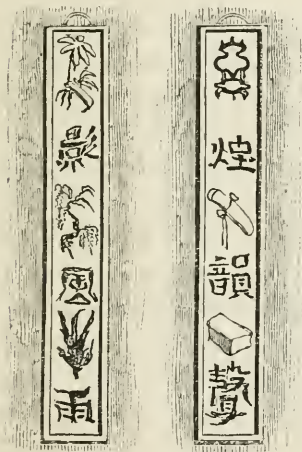 煙韻聲
影風雨